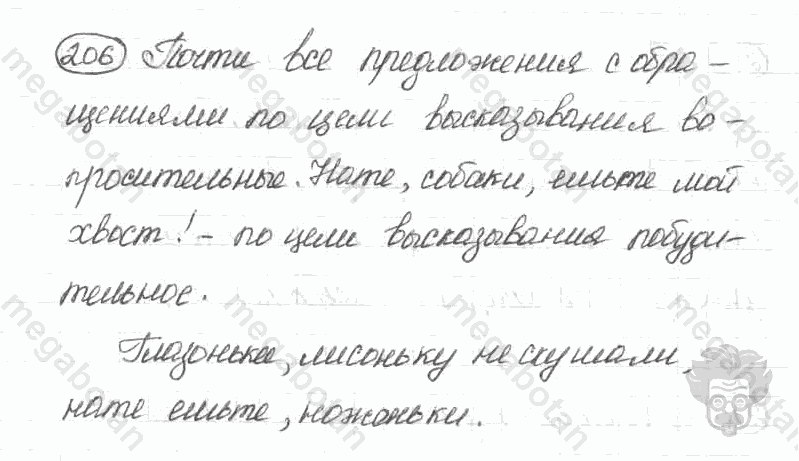 206 Почти все предложения с обра-
щениями по цели высказывания во-
просительные. Нате, собаки, ешьте мой
хвост! - по цели высказывания побуди-
тельное.
Глазоньки, лисоньку не скушали,
нате ешьте, ноженьки.